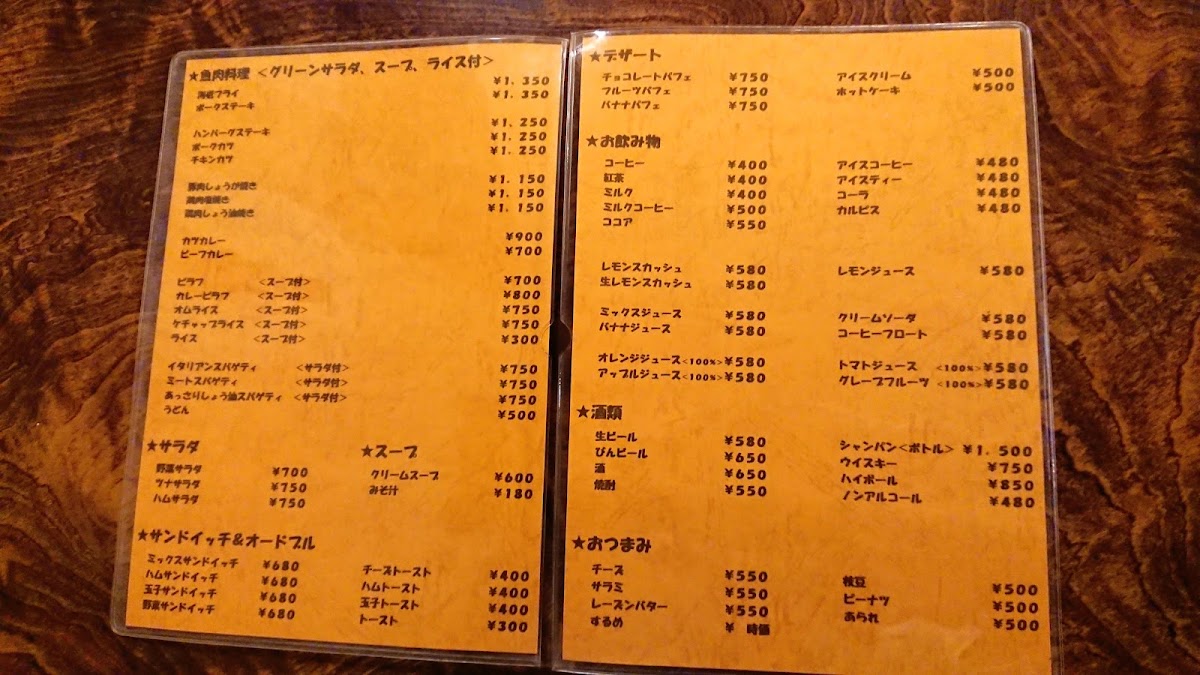 ★魚肉料理 <グリーンサラダ、スープ、ライス付>
海老フライ ¥1,350
ポークステーキ ¥1,350
ハンバーグステーキ ¥1,250
ポークカツ ¥1,250
チキンカツ ¥1,250
豚肉しょうが焼き ¥1,150
鶏肉塩焼き ¥1,150
鶏肉しょう油焼き ¥1,150
カツカレー ¥900
ビーフカレー ¥700
ピラフ <スープ付> ¥700
カレーピラフ <スープ付> ¥800
オムライス <スープ付> ¥750
ケチャップライス <スープ付> ¥750
ライス <スープ付> ¥300
イタリアンスパゲティ <サラダ付> ¥750
ミートスパゲティ <サラダ付> ¥750
あっさりしょう油スパゲティ <サラダ付> ¥750
うどん ¥500
★サラダ
野菜サラダ ¥700
ツナサラダ ¥750
ハムサラダ ¥750
★スープ
クリームスープ ¥600
みそ汁 ¥180
★サンドイッチ&オードブル
ミックスサンドイッチ ¥680
ハムサンドイッチ ¥680
玉子サンドイッチ ¥680
野菜サンドイッチ ¥680
チーズトースト ¥400
ハムトースト ¥400
玉子トースト ¥400
トースト ¥300
★デザート
チョコレートパフェ ¥750 アイスクリーム ¥500
フルーツパフェ ¥750 ホットケーキ ¥500
バナナパフェ ¥750
★お飲み物
コーヒー ¥400 アイスコーヒー ¥480
紅茶 ¥400 アイスティー ¥480
ミルク ¥400 コーラ ¥480
ミルクコーヒー ¥500 カルピス ¥480
ココア ¥550
レモンスカッシュ ¥580 レモンジュース ¥580
生レモンスカッシュ ¥580
ミックスジュース ¥580 クリームソーダ ¥580
バナナジュース ¥580 コーヒーフロート ¥580
オレンジジュース<100%>¥580 トマトジュース <100%>¥580
アップルジュース<100%>¥580 グレープフルーツ <100%>¥580
★酒類
生ビール ¥580 シャンパン<ボトル> ¥1,500
びんビール ¥650 ウイスキー ¥750
酒 ¥650 ハイボール ¥850
焼酎 ¥550 ノンアルコール ¥480
★おつまみ
チーズ ¥550 枝豆 ¥500
サラミ ¥550 ピーナツ ¥500
レーズンバター ¥550 あられ ¥500
するめ ¥ 時価